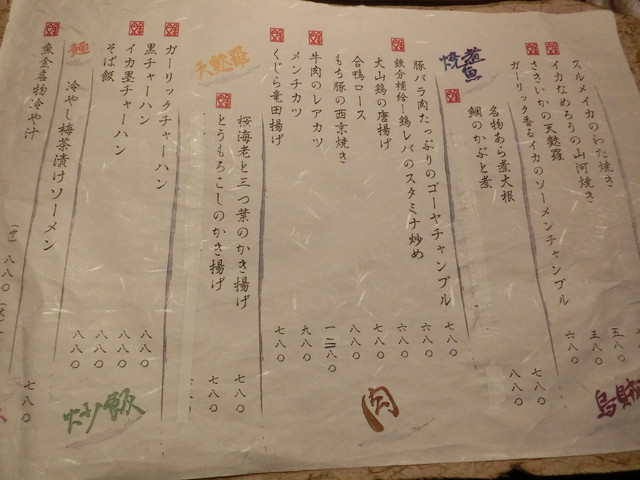 スルメイカのわた焼き
イカなめろうの山河焼き
さきいかの天麩羅
ガーリック香るイカのソーメンチャンプル
五八〇
六八〇
烏賊
煮
焼
名物あら煮大根
鯛のかぶと煮
七八〇
八八〇
豚バラ肉たっぷりのゴーヤチャンプル
鉄分補給！鶏レバのスタミナ炒め
大山鶏の唐揚げ
合鴨ロース
もち豚の西京焼き
牛肉のレアカツ
メンチカツ
くじら竜田揚げ
七八〇
六八〇
六八〇
七八〇
八八〇
一二八〇
九八〇
七八〇
肉
天麩羅
桜海老と三つ葉のかき揚げ
とうもろこしのかき揚げ
七八〇
七八〇
ガーリックチャーハン
黒チャーハン
イカ墨チャーハン
そば飯
八八〇
八八〇
八八〇
八八〇
炒飯
麺
冷やし梅茶漬けソーメン
魚金名物冷や汁
七八〇
八八〇